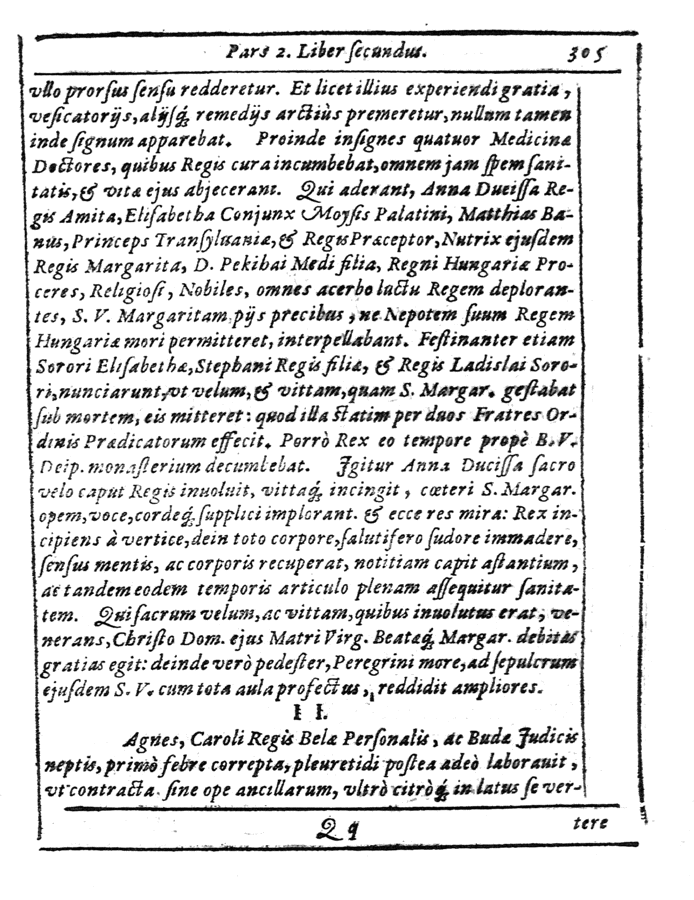 Pars 2. Liber ſecundus. 305
vllo prorſus ſenſu redderetur. Et licet illius experiendi gratia,
veſicatorijs, alijſq́; remedijs arctiùs premeretur, nullum tamen
inde ſignum apparebat. Proinde inſignes quatuor Medicinæ
Doctores, quibus Regis cura incumbebat, omnem jam ſpem ſani-
tatis, & vitæ ejus abjecerant. Qui aderant, Anna Duciſſa Re-
gis Amita, Eliſabetha Conjunx Moyſis Palatini, Matthias Ba-
nus, Princeps Tranſyluaniæ, & Regis Præceptor, Nutrix ejuſdem
Regis Margarita, D. Pekibai Medi filia, Regni Hungariæ Pro-
ceres, Religioſi, Nobiles, omnes acerbo luctu Regem deploran-
tes, S. V. Margaritam pijs precibus, ne Nepotem ſuum Regem
Hungariæ mori permitteret, interpellabant. Feſtinanter etiam
Sorori Eliſabethæ, Stephani Regis filiæ, & Regis Ladislai Soro-
ri, nunciarunt, vt velum, & vittam, quam S. Margar. geſtabat
ſub mortem, eis mitteret: quod illa ſtatim per duos Fratres Or-
dinis Prædicatorum effecit. Porrò Rex eo tempore propè B. V.
Deip. monaſterium decumbebat. Igitur Anna Duciſſa ſacro
velo caput Regis inuoluit, vittaq́; incingit, cæteri S. Margar.
opem, voce, cordeq́; ſupplici implorant. & ecce res mira: Rex in-
cipiens à vertice, dein toto corpore, ſalutifero ſudore immadere,
ſenſus mentis, ac corporis recuperat, notitiam capit aſtantium,
ac tandem eodem temporis articulo plenam aſſequitur ſanita-
tem. Qui ſacrum velum, ac vittam, quibus inuolutus erat, ve-
nerans, Chriſto Dom. ejus Matri Virg. Beatæq́; Margar. debitas
gratias egit: deinde verò pedeſter, Peregrini more, ad ſepulcrum
ejuſdem S. V. cum tota aula profectus, reddidit ampliores.
II.
Agnes, Caroli Regis Belæ Perſonalis, ac Budæ Judicis
neptis, primò febre correpta, pleuretidi poſtea adeò laborauit,
vt contracta ſine ope ancillarum, vltrò citròq́; in latus ſe ver-
Qq tere